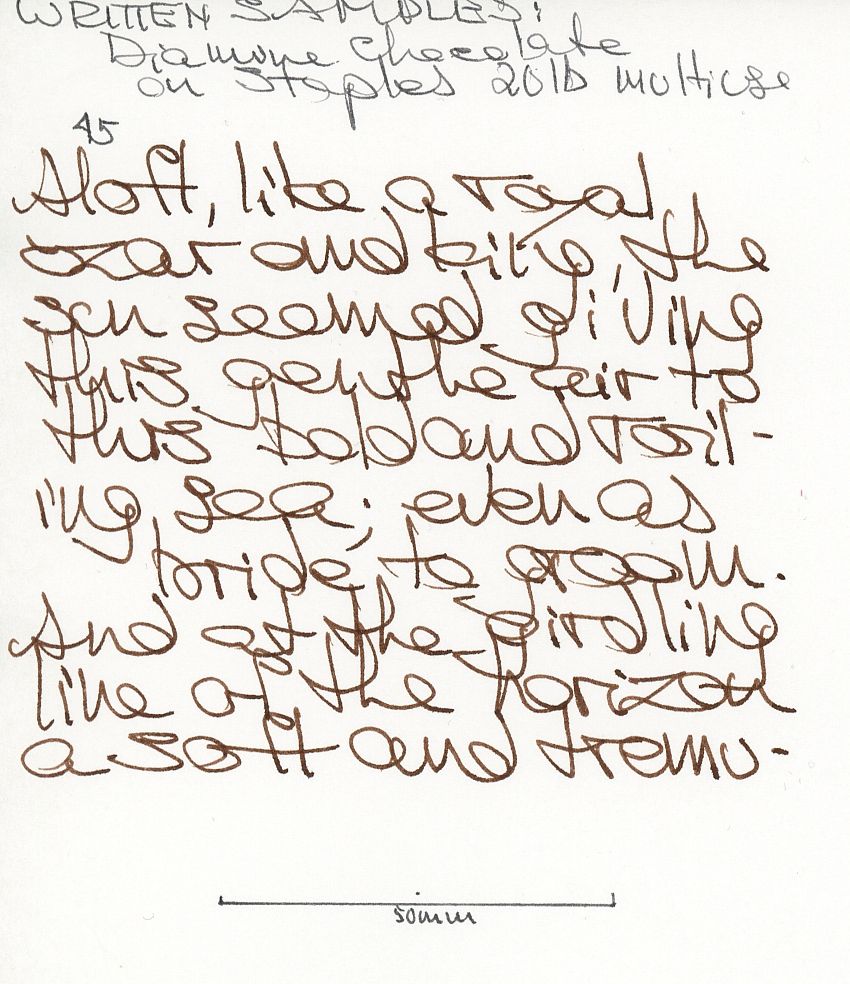 WRITTEN SAMPLES:
Diamine Chocolate
on Staples 20lb multiuse
45
Aloft, like a royal
czar and king, the
sun seemed giving
this gentle air to
this bold and roll-
ing sea; even as
bride to groom.
And at the girdling
line of the horizon
a soft and tremu-
50mm